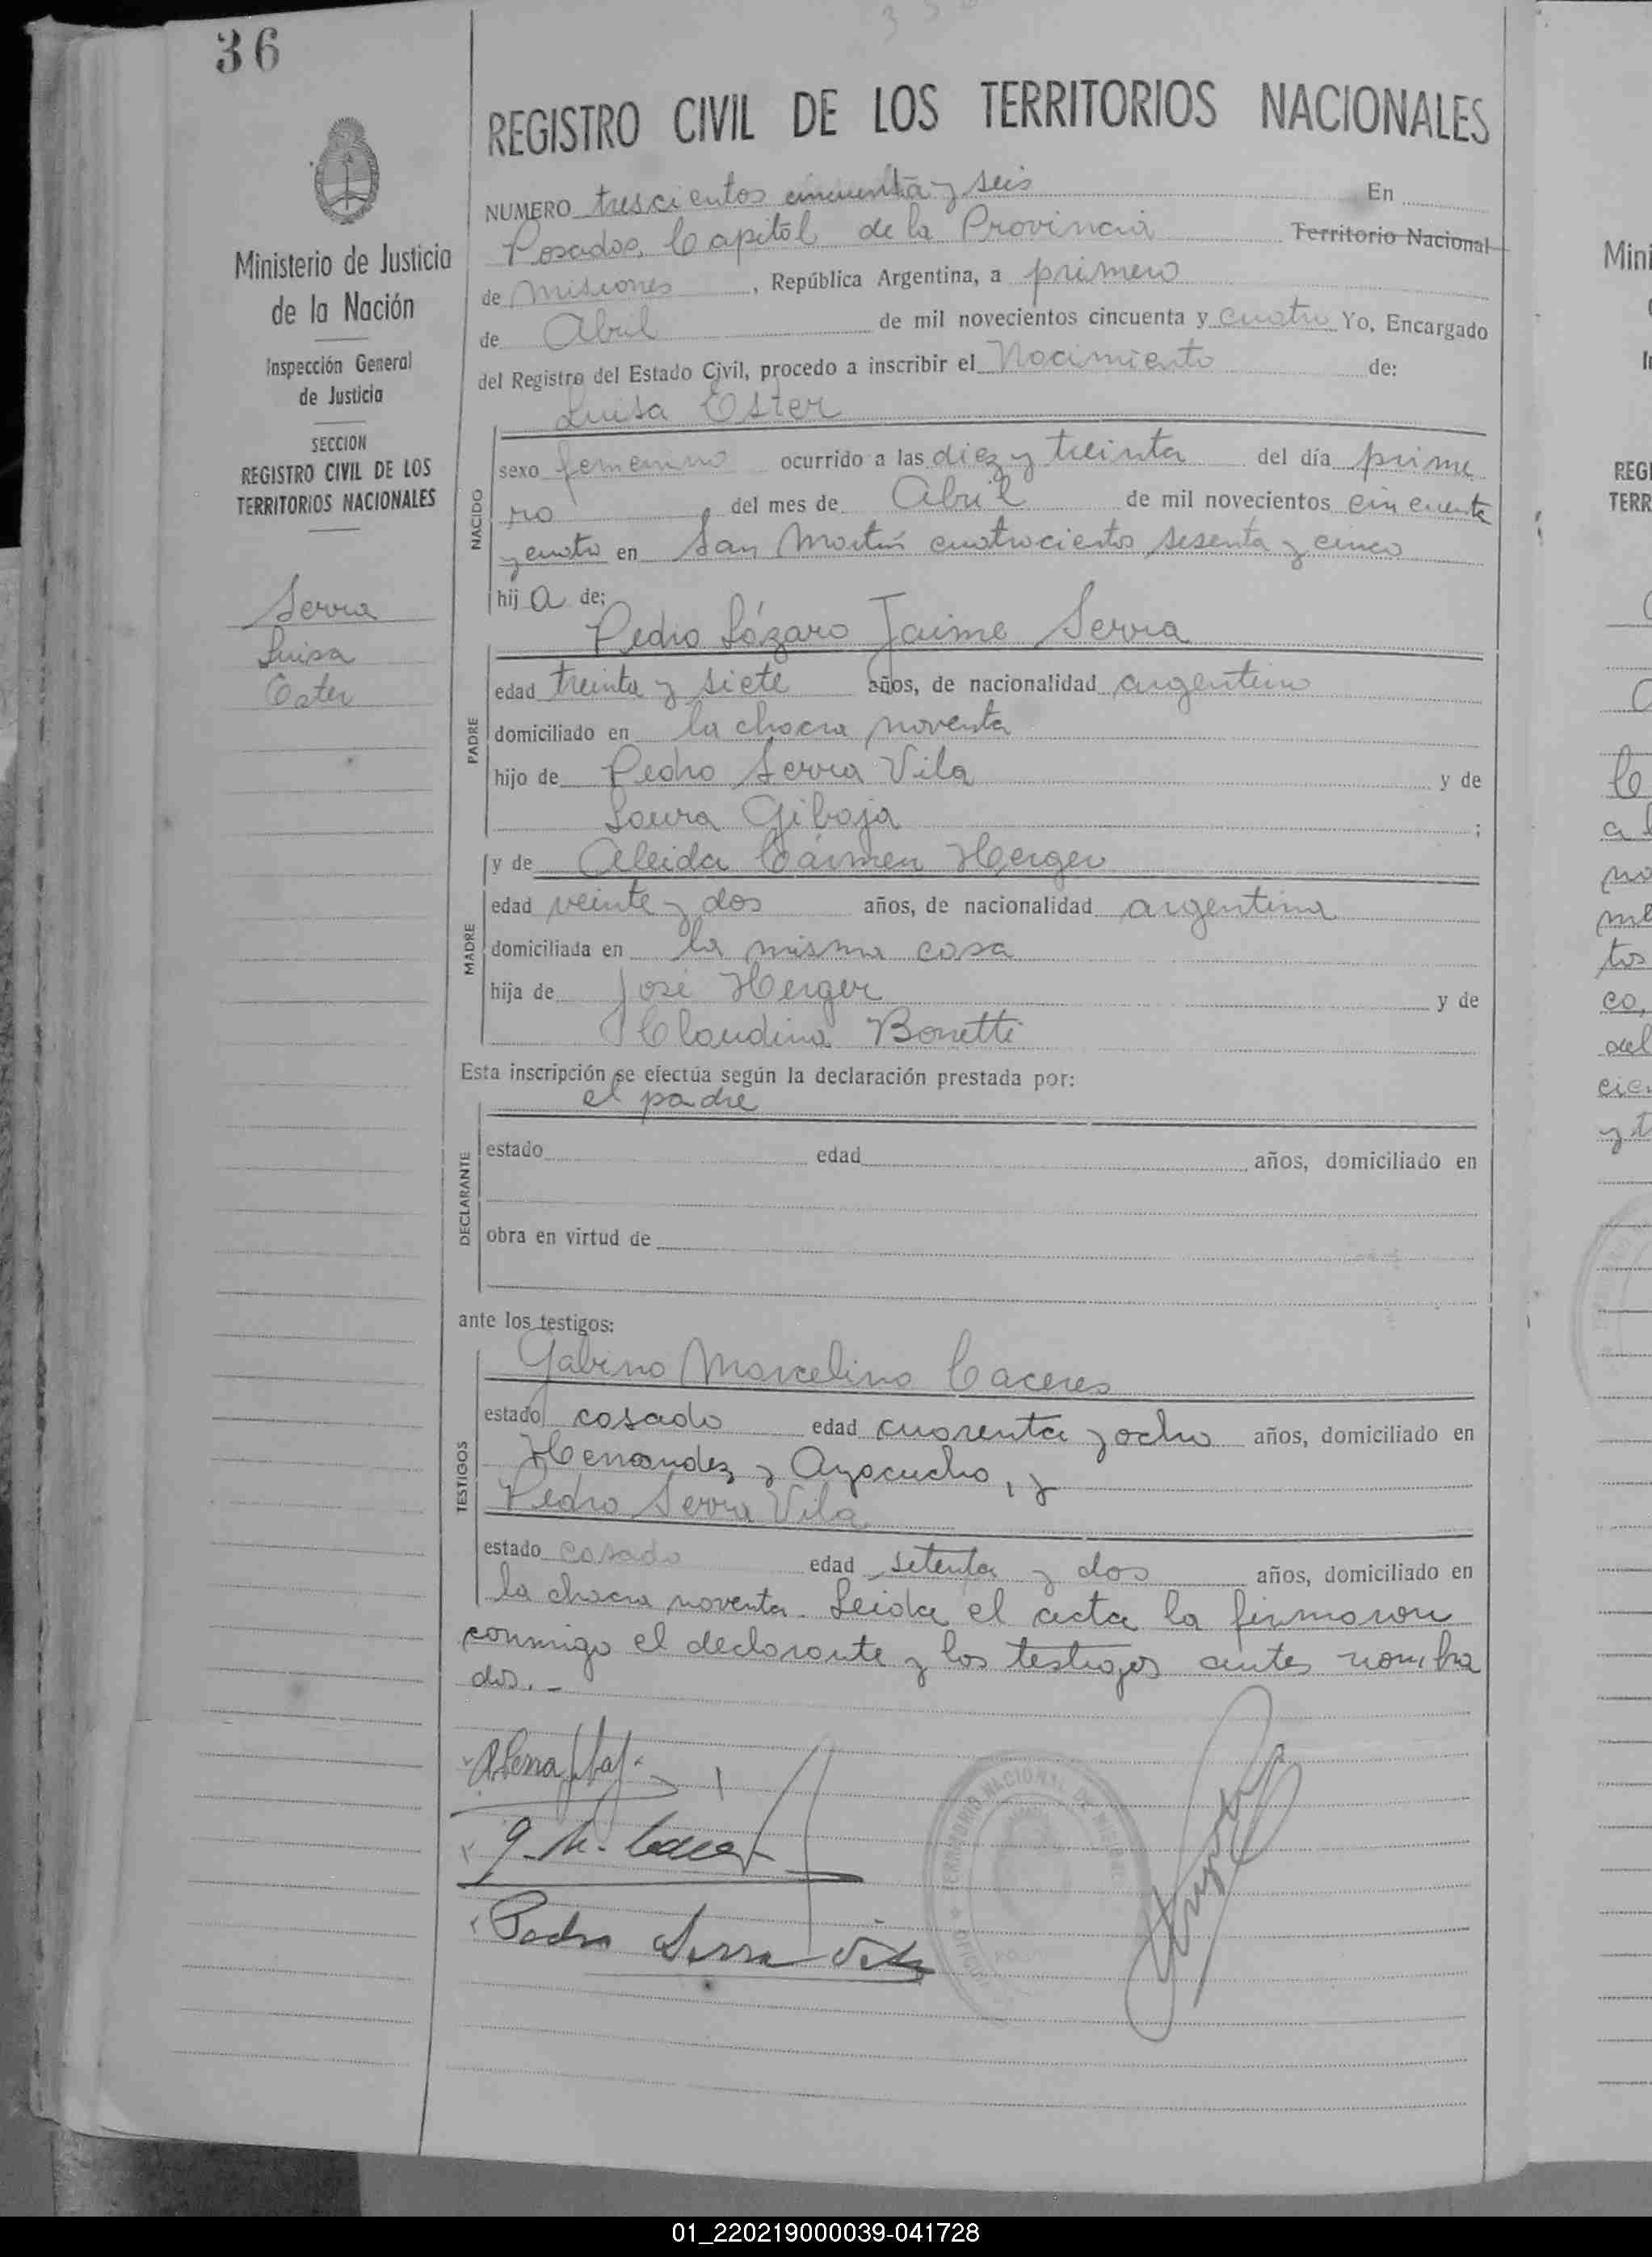 36
Ministerio de Justicia
de la Nación
Inspección General
de Justicia
SECCION
REGISTRO CIVIL DE LOS
TERRITORIOS NACIONALES
Serra
Luisa
Ester
REGISTRO CIVIL DE LOS TERRITORIOS NACIONALES
NUMERO trescientos cincuenta y seis En
Posadas, Capital de la Provincia Territorio Nacional
de Misiones, República Argentina, a primero
de Abril de mil novecientos cincuenta y cuatro Yo, Encargado
del Registro del Estado Civil, procedo a inscribir el Nacimiento de:
Luisa Ester
NACIDO
sexo femenino ocurrido a las diez y treinta del día prime
ro del mes de Abril de mil novecientos cincuenta
y cuatro en San Martín cuatrocientos sesenta y cinco
hija de:
Pedro Lázaro Jaime Serra
PADRE
edad treinta y siete años, de nacionalidad argentino
domiciliado en la chacra noventa
hijo de Pedro Serra Vila y de
Laura Gibaja ;
y de Aleida Cármen Herger
MADRE
edad veinte y dos años, de nacionalidad argentina
domiciliada en la misma casa
hija de José Herger y de
Claudina Bonetti
Esta inscripción se efectúa según la declaración prestada por:
el padre
DECLARANTE
estado edad años, domiciliado en
obra en virtud de
ante los testigos:
Gabino Marcelino Caceres
TESTIGOS
estado casado edad cuarenta y ocho años, domiciliado en
Hernandez y Ayacucho, y
Pedro Serra Vila
estado casado edad setenta y dos años, domiciliado en
la chacra noventa. Leida el acta la firmaron
conmigo el declarante y los testigos antes nombra
dos.-
G. M. Caceres
Pedro Serra Vila
TERRITORIO NACIONAL DE MISIONES
01_220219000039-041728